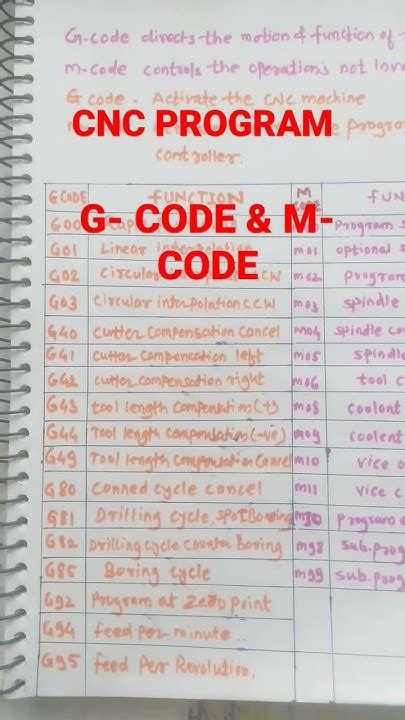 G-code directs the motion & function of
M-code controls the operations not inv
G code - Activate the CNC machine
CNC PROGRAM
Progra
controller.
G CODE FUNCTION M CODE FUN
G00 Program S
G- CODE & M-
CODE
G01 Linear m01 optional s
G02 Circular CW m02 progra
G03 Circular interpolation CCW m03 spindle
G40 Cutter Compensation Cancel M04 spindle co
G41 Cutter Compencation left m05 spindl
G42 cutter compensation right m06 tool c
G43 tool length Compensation (+) m08 coolant
G44 Tool length Compensation (-ve) m09 coolent
G49 Tool length Compensation Cancel m10 vice o
G80 Canned cycle cancel m11 vice c
G81 Drilling cycle, spot Boaring M30 program
G82 Drilling cycle counter Boring m98 sub-prog
G85 Boring cycle m99 sub-prog
G92 Program at Zero point
G94 feed per minute
G95 feed Per Revolution.